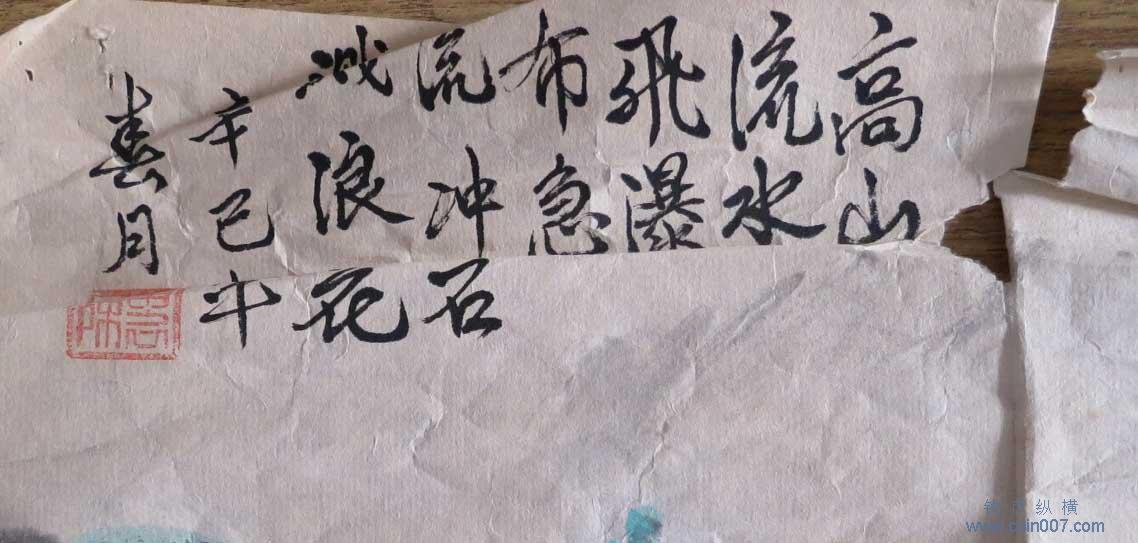 高山
流水
飛瀑
布急
流冲石
溅浪花
辛巳年
春月
纵横
www.coin007.com